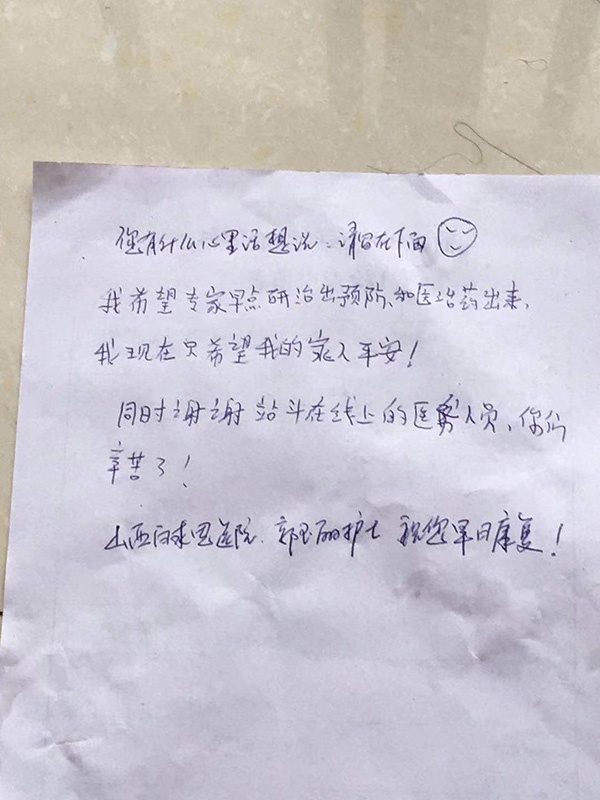 您有什么心里话想说、请留在下面
我希望专家早点研治出预防、和医治药出来,
我现在只希望我的家人平安!
同时谢谢站斗在线上的医务人员、你们
辛苦了!
山西白求恩医院、郭玉丽护士 祝您早日康复!